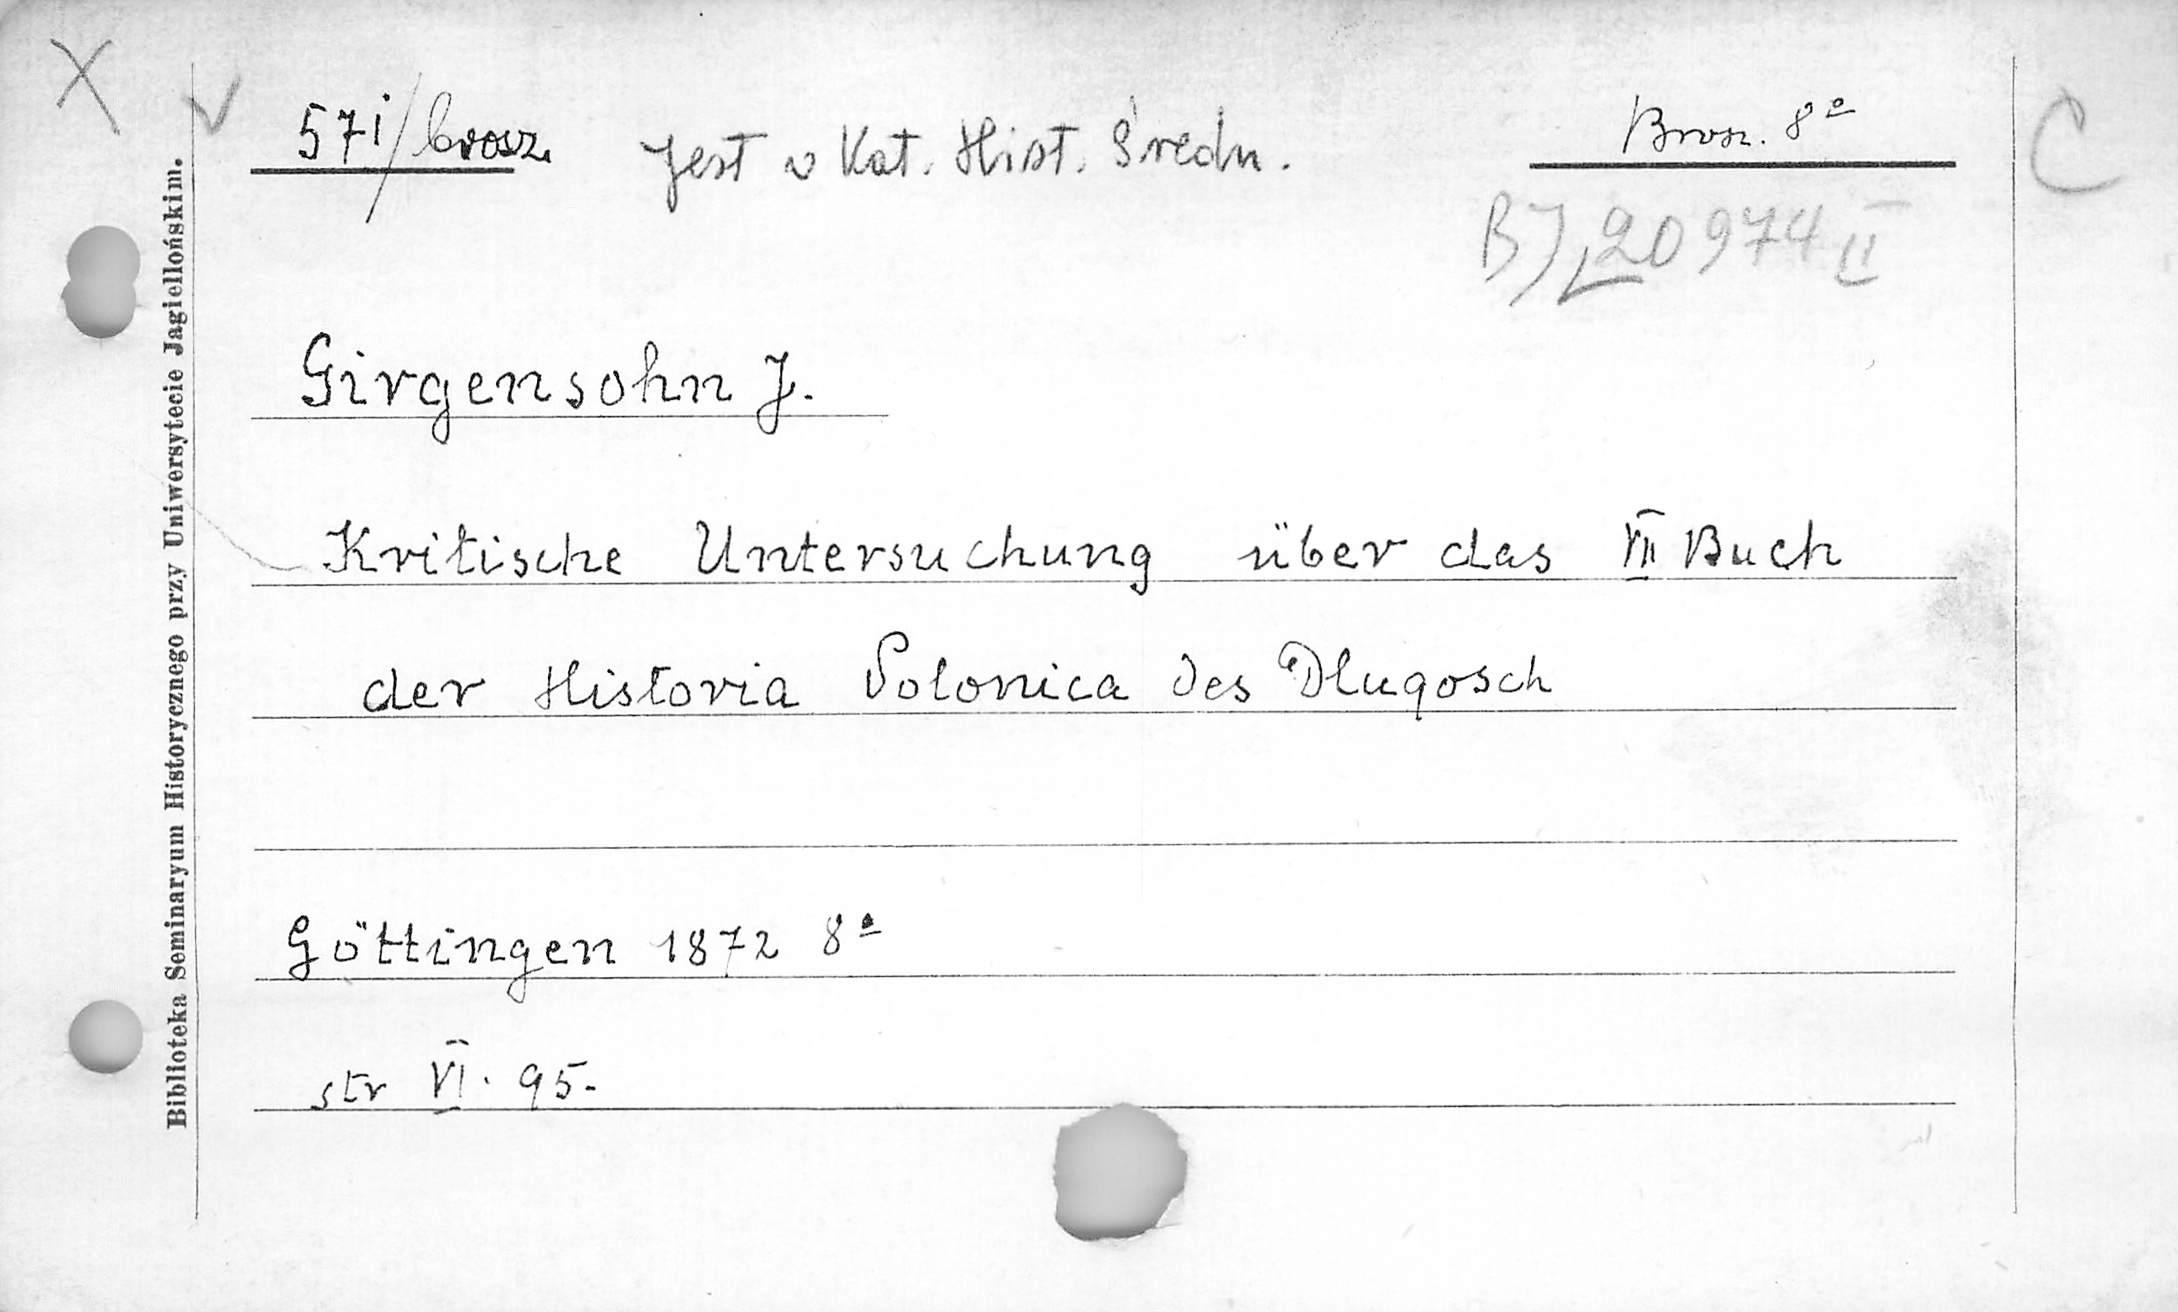 X
v 571/brosz. Jest w Kat. Hist. Średn. Brosz. 8º C
BJ 20974 II
Girgensohn J.
Kritische Untersuchung über das VII Buch
der Historia Polonica des Dlugosch
Göttingen 1872 8º
str VI. 95.
Biblioteka Seminaryum Historycznego przy Uniwersytecie Jagiellońskim.